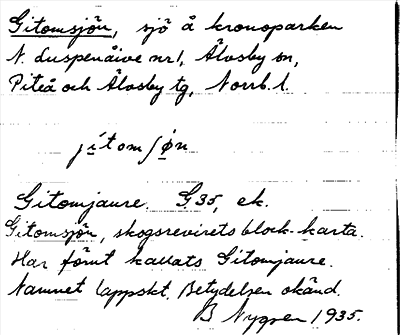 Gitomsjön, sjö å kronoparken
N. Luspenåive nr1, Älvsby sn,
Piteå och Älvsby tg, Norrb. l.
jítomʃøn
Gitomjaure. G35, ek.
Gitomsjön, skogsrevirets block-karta.
Har förut kallats Gitomjaure.
Namnet lappskt. Betydelsen okänd.
B Nygren 1935.